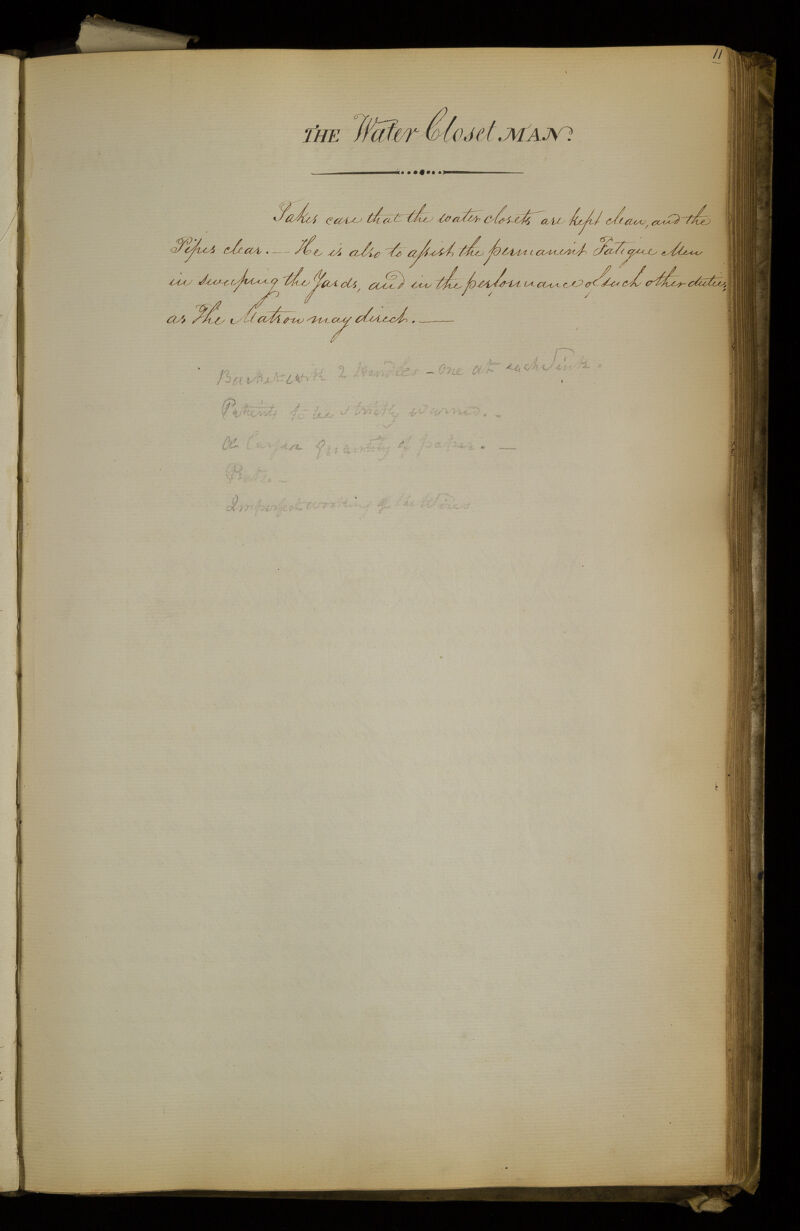 11
THE Water Closet MAN.
Takes care that the water closets are kept clean, and the
Pipes clear. — He is also to assist the permanent Fatigue Men
in sweeping the Yards, and in the performance of such other duties,
as The Matron may direct. —
Basket with 2 Handles - One at each Sink.
Patients to be strictly warned. -
A larger quantity of paper. —
Imperfect working of the Wires